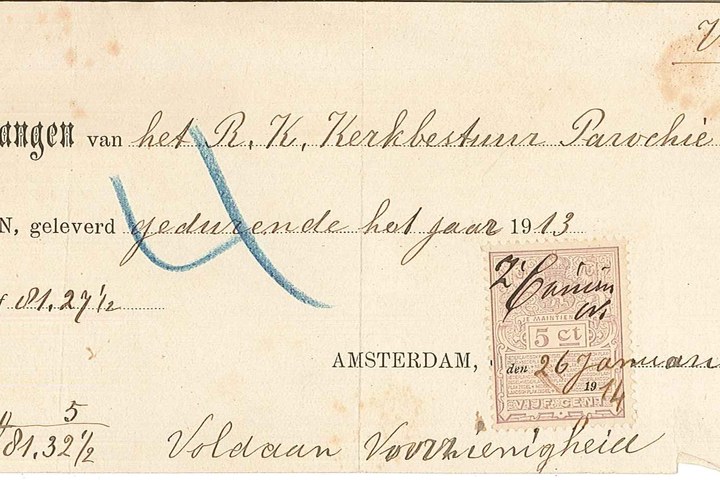 V
angen van het R. K. Kerkbestuur Parochie
N, geleverd gedurende het jaar 1913
4
f 81.27½
JE MAINTIENDRAI
5 ct
AMSTERDAM, den 26 Januari
1914
VIJF CENT
5
81.32½ Voldaan